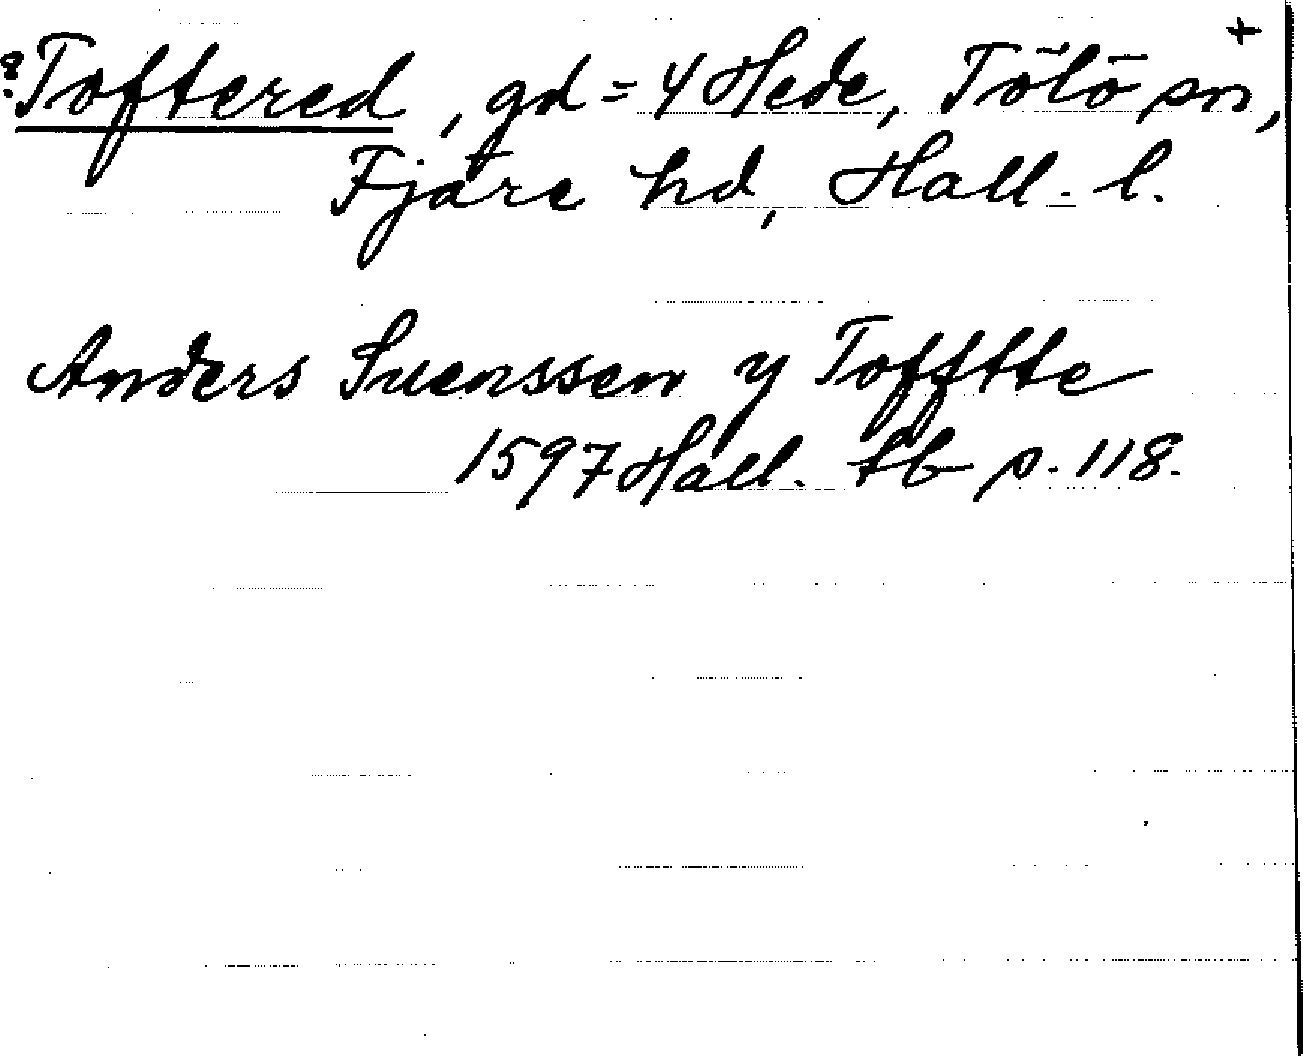 +
?Toftered, gd = 4 Hede, Tölö sn,
Fjäre hd, Hall. l.
Anders Suenssen y Tofftte
1597 Hall. tb s. 118.